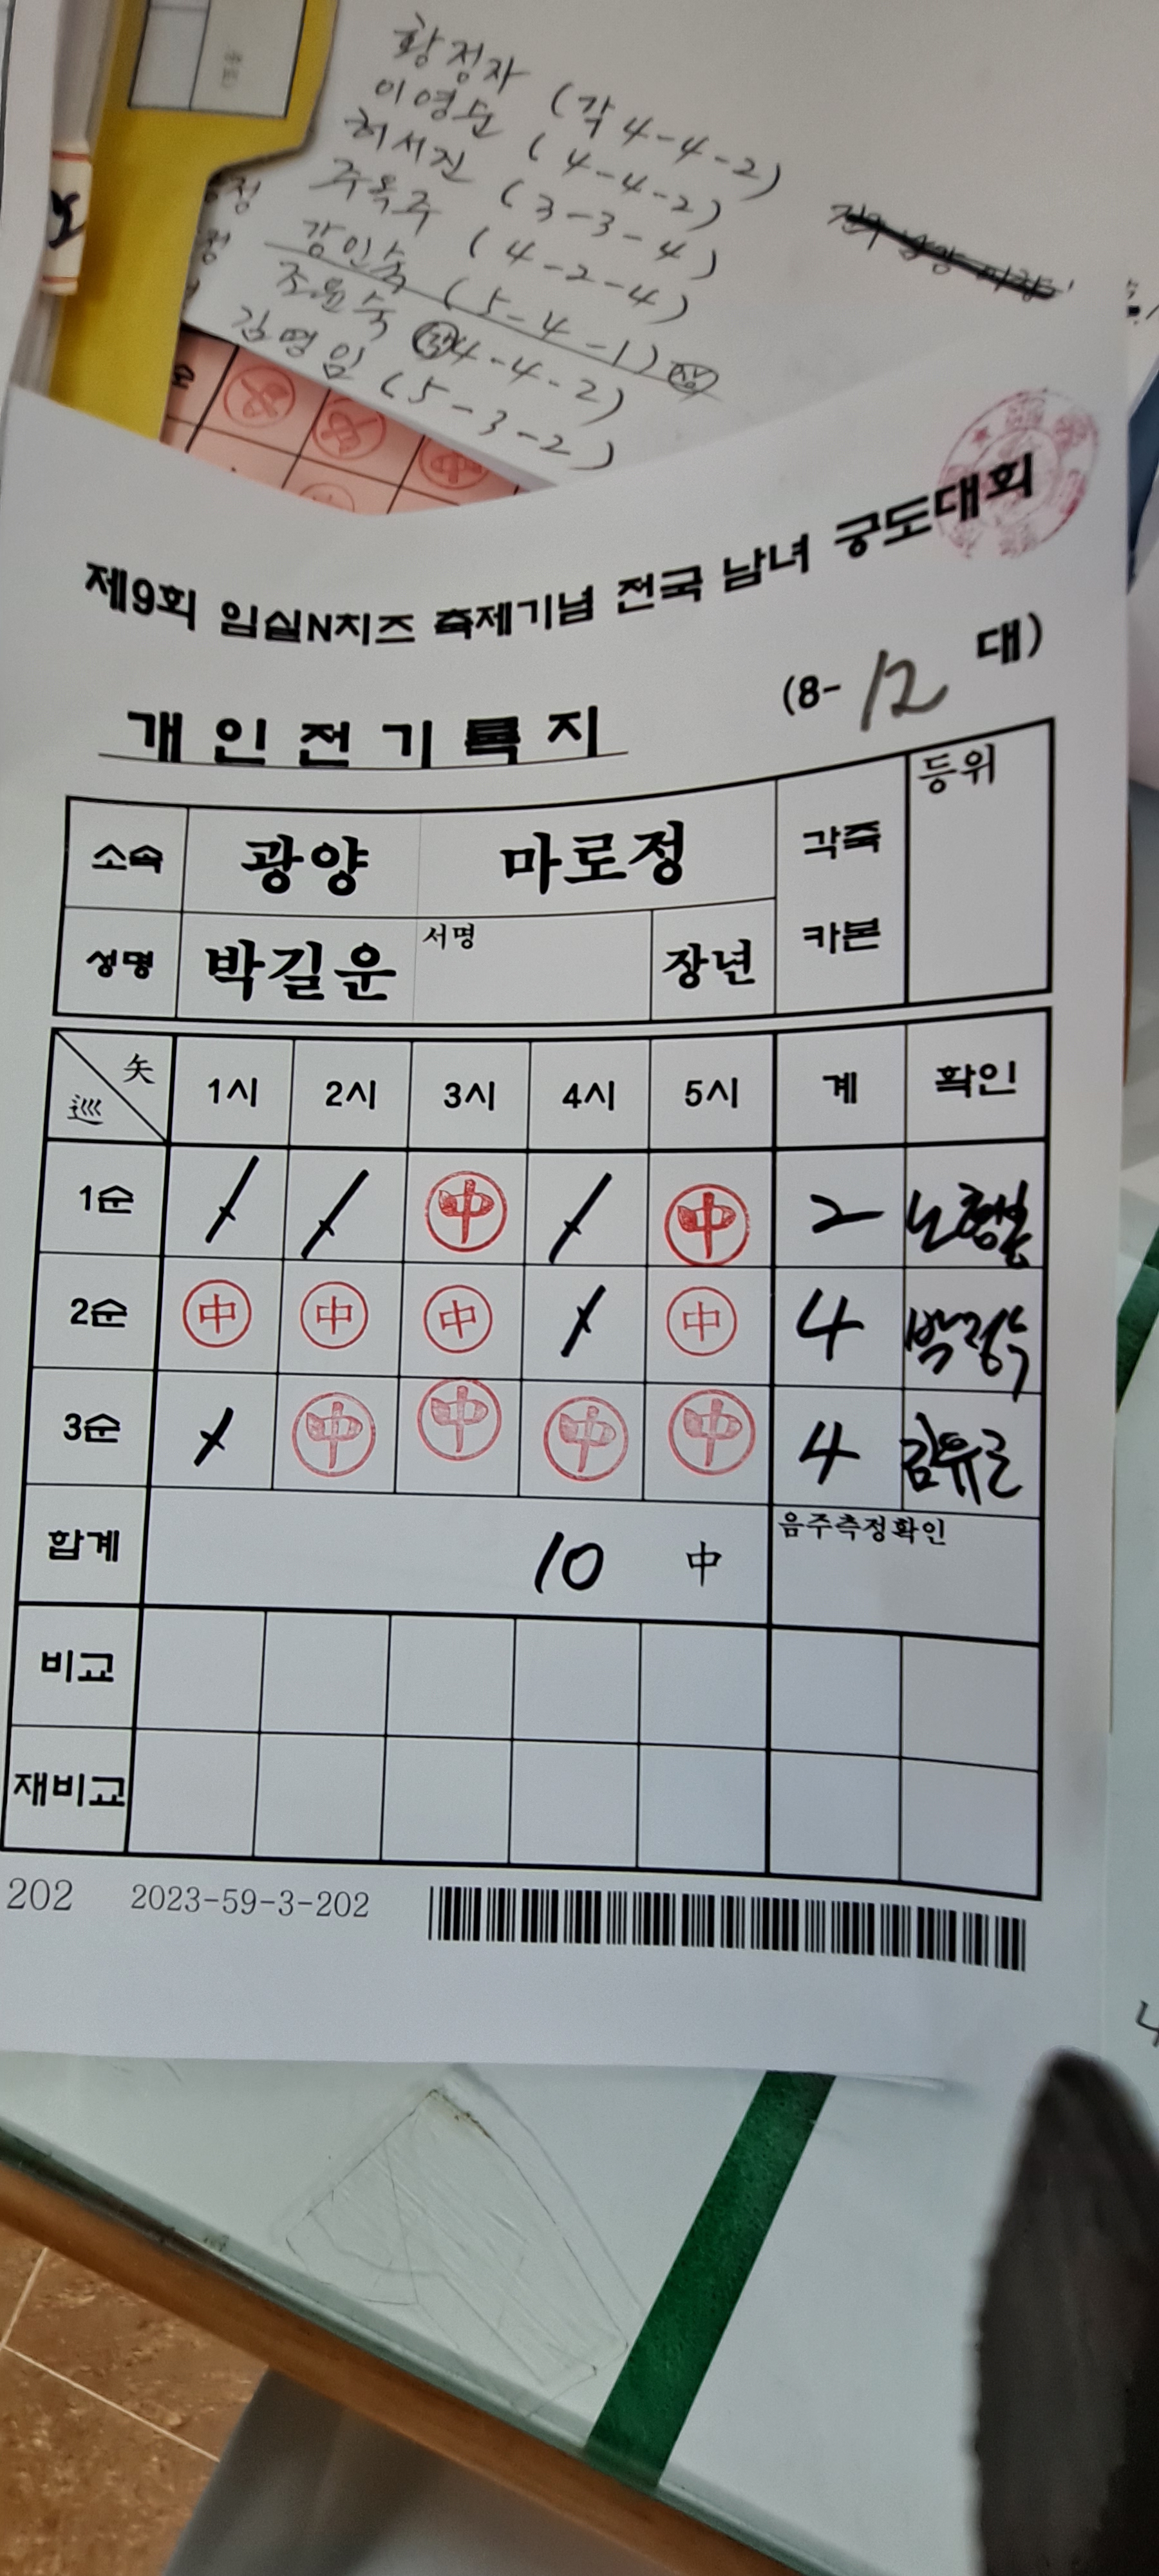 황정자 (각 4-4-2)
이영순 (4-4-2)
허서진 (3-3-4)
주옥주 (4-2-4)
강인숙 (5-4-1)
조윤숙 4-4-2)
김명임 (5-3-2)
제9회 임실N치즈 축제기념 전국 남녀 궁도대회
(8-12 대)
개인전기록지
소속 광양 마로정 각죽 등위
성명 박길운 서명 장년 카본
矢
巡 1시 2시 3시 4시 5시 계 확인
1순 中 中 2
2순 中 中 中 中 4 박정수
3순 中 中 中 中 4 김유근
합계 10 中 음주측정확인
비교
재비교
202 2023-59-3-202